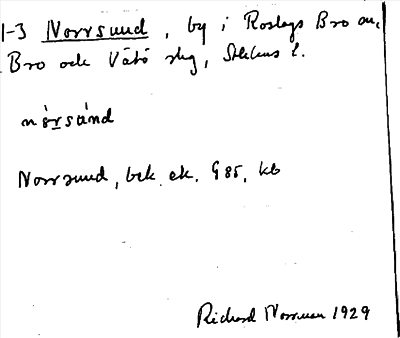 1-3 Norrsund, by i Roslags Bro sn,
Bro och Vätö slg, Sthlms l.
nórsùnd
Norrsund, bek. ek. G 85, kb
Richard Norrman 1929